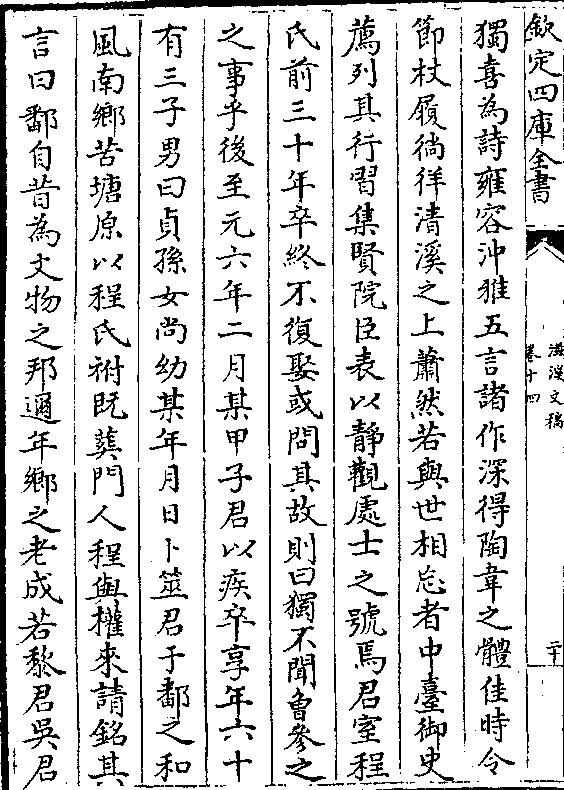 欽定四庫全書
滋溪文稿
卷十四
二十
獨喜為詩雍容沖雅五言諸作深得陶韋之體佳時令
節杖屨徜徉清溪之上蕭然若與世相忘者中臺御史
薦列其行習集賢院臣表以靜觀處士之號焉君室程
氏前三十年卒終不復娶或問其故則曰獨不聞曾參之
之事乎後至元六年二月某甲子君以疾卒享年六十
有三子男曰貞孫女尚幼某年月日卜筮君于鄱之和
風南鄉苦塘原以程氏祔既葬門人程與權來請銘其
言曰鄱自昔為文物之邦邇年鄉之老成若黎君吳君